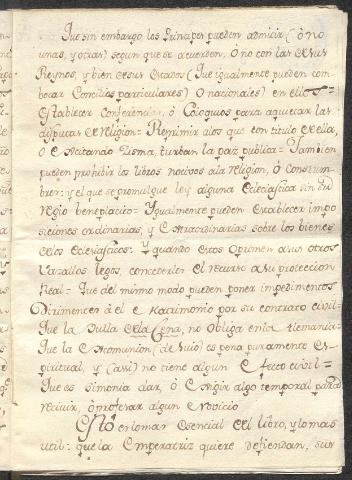 Que sin embargo los Principes pueden admitir (ò no
unas, y otras) segun que se acuerden, ò no con las de sus
Reynos, y bien de sus Estados (Que igualmente pueden com-
bocar Concilios particulares) ò nacionales) en ellos=
Establecer Conferencias, ò Coloquios para aquietar las
disputas de religion= Reprimir alos que con titulo de ella,
ò Excitando zisma, turban la paz publica= Tambien
pueden prohibir los libros nocivos ala religion, ò Costum-
bren: y el que se promulgue ley alguna Eclesiastica sin su
regio beneplacito= Ygualmente pueden Establecer impo
siciones ordinarias, y Extraordinarias sobre los bienes
de los Eclesiasticos: Y quando estos oprimen a sus otros
Vasallos legos, concederles el recurso a su proteccion
Real= Que del mismo modo pueden poner impedimentos
Dirimentes á el Matrimonio por su contrato civil=
Que la Bulla dela Cena, no obliga enla Alemania:
Que la Excomunion (de suio) es pena puramente Es-
piritual, y (assi) no tiene algun Efecto civil=
Que es simonia dar, ò Exigir algo temporal para
recivir, ò profesar algun Novicio
Esto es lo mas esencial del libro, y lo mas
util: que la Emperatriz quiere defiendan, sus